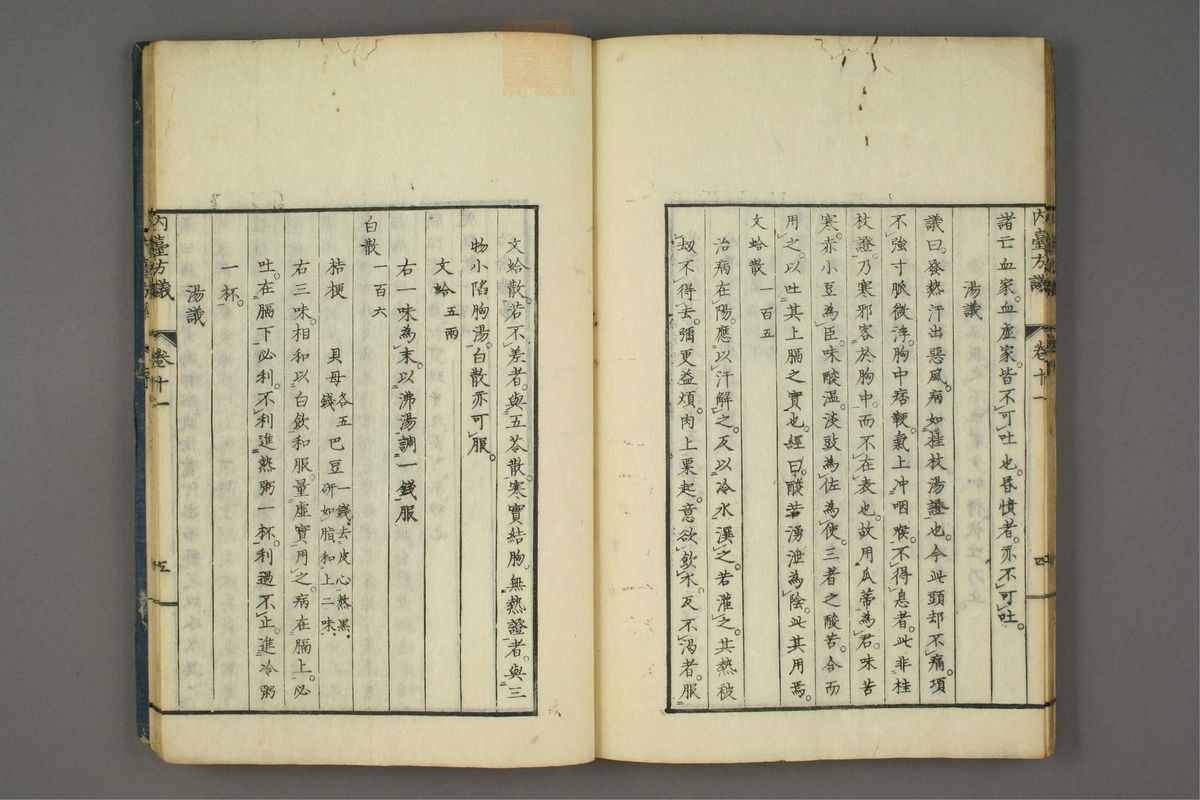 諸亡血家。血虛家。皆不可吐也。昏憒者。亦不可吐。
湯議
議曰。發熱汗出惡風。病如桂枝湯證也。今此頭却不痛。項
不強。寸脈微浮。胸中痞鞕。氣上冲咽喉。不得息者。此非桂
枝證。乃寒邪客於胸中。而不在表也。故用瓜蒂為君。味苦
寒。赤小豆為臣。味酸溫。淡豉為佐為使。三者之酸苦。合而
用之。以吐其上膈之實也。經曰。酸苦湧泄為陰。此其用焉。
文蛤散 一百五
治病在陽。應以汗解之。反以冷水潠之。若灌之。其熱被
刼不得去。彌更益煩。肉上粟起。意欲飲水。反不渴者。服
內臺方議 卷十一 四
文蛤散。若不差者。與五苓散。寒實結胸。無熱證者。與三
物小陷胸湯。白散亦可服。
文蛤 五兩
右一味為末。以沸湯調一錢服
白散 一百六
桔梗 貝母 各五錢 巴豆 一錢去皮心熬黑研如脂和上二味
右三味。相和以白飲和服。量虛實用之。病在膈上。必
吐。在膈下必利。不利進熱粥一杯。利過不止。進冷粥
一杯。
湯議
內臺方議 卷十一